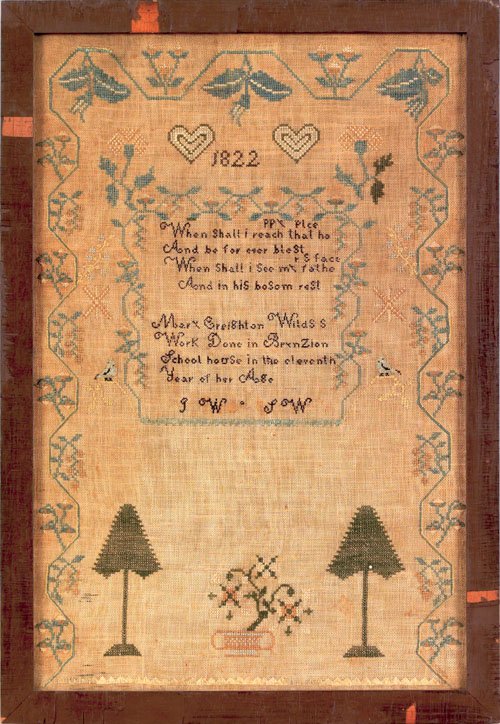 1822
ppy plce
When Shall i reach that ha
And be for ever blest
r S face
When Shall i See my fathe
And in his bosom rest
Mary Creighton Wilds S
Work Done in BrynZion
School house in the eleventh
Year of her Age
J W S W